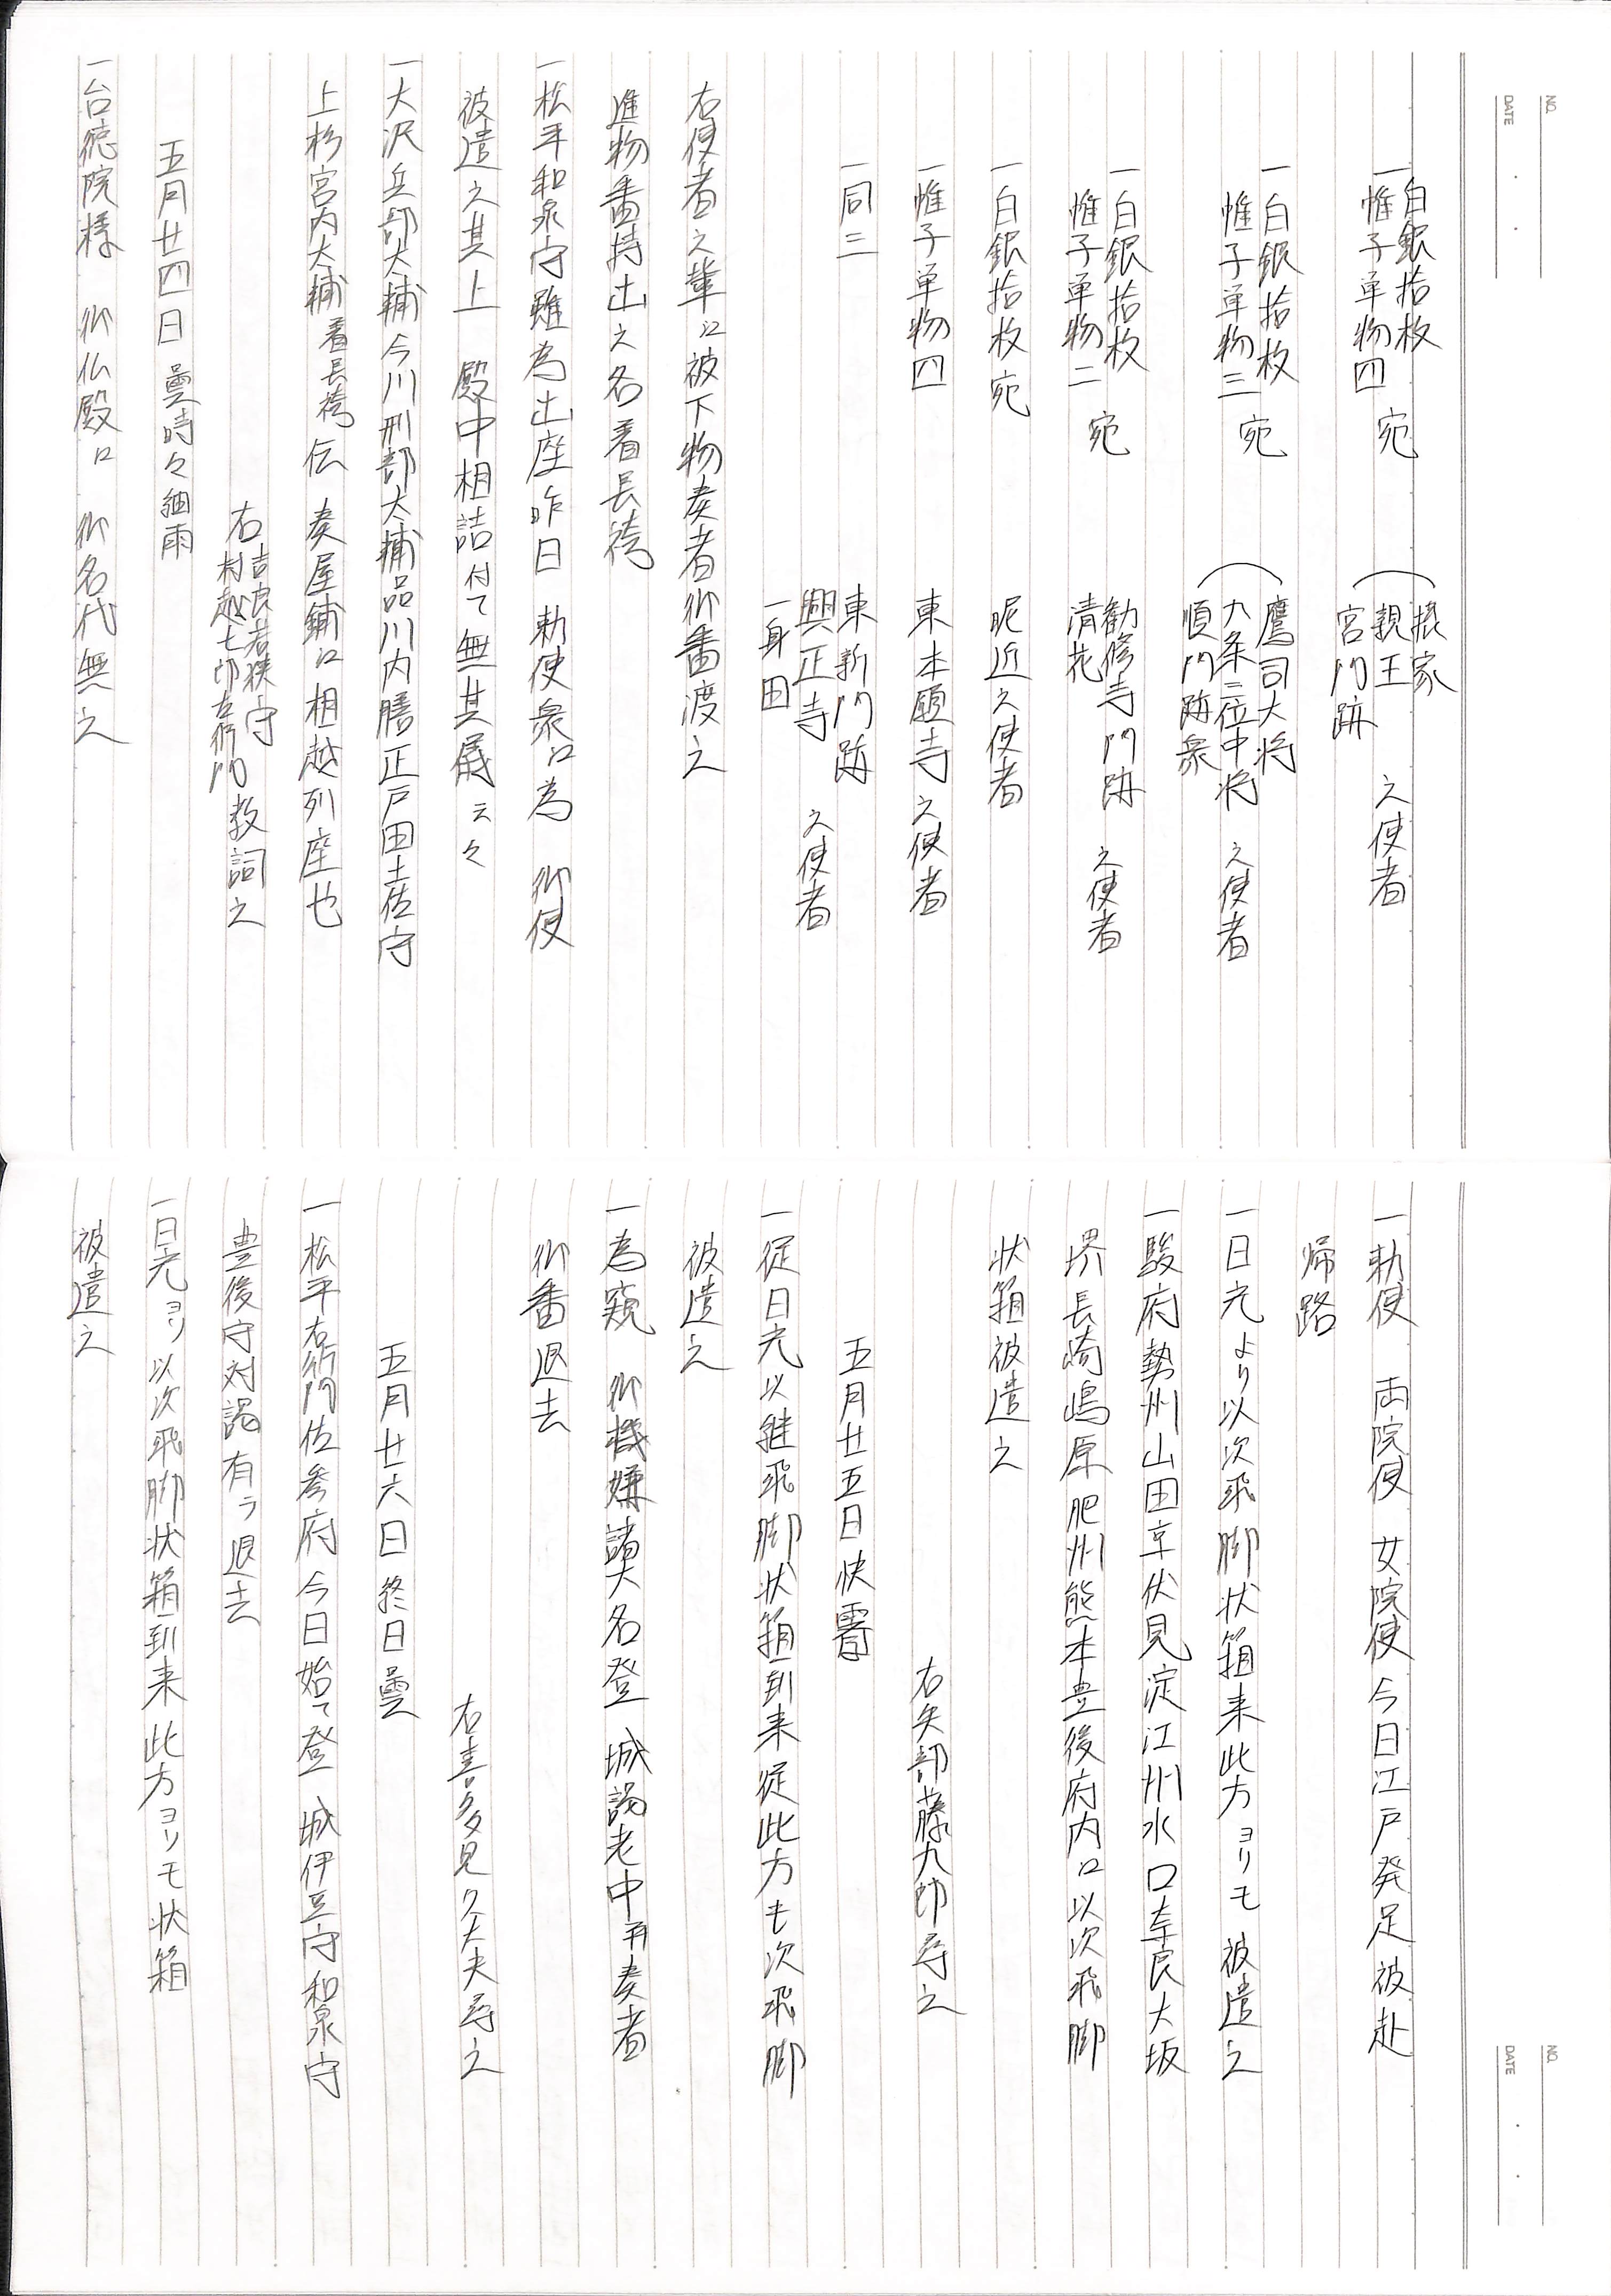 NO.
DATE
一白銀拾枚
帷子単物四 宛
摂家
親王
宮門跡
之使者
一白銀拾枚
帷子単物三 宛
鷹司大将
九条二位中将
順門跡衆
之使者
一白銀拾枚
帷子単物二 宛
勧修寺門跡
清花
之使者
一白銀拾枚宛
昵近之使者
一帷子単物四
東本願寺之使者
一同三
東新門跡
興正寺
一身田
之使者
右使者之輩江被下物奏者御番渡之
進物番持出之名着長袴
一松平和泉守雖為出座昨日 勅使衆江為 御使
被遣之其上 殿中相詰付て無其儀云々
一大沢兵部大輔今川刑部大輔品川内膳正戸田土佐守
上杉宮内大輔着長袴伝 奏屋鋪江相越列座也
右吉良若狭守
村越七郎左衛門
教詞之
五月廿四日 曇時々細雨
一台徳院様 御仏殿江 御名代無之
NO.
DATE
一勅使 両院使 女院使今日江戸発足被赴
帰路
一日光より以次飛脚状箱来此方ヨリモ被遣之
一駿府勢州山田京伏見淀江州水口奈良大坂
堺長崎嶋原肥州熊本豊後府内江以次飛脚
状箱被遣之
右矢部藤九郎尋之
五月廿五日快霽
一従日光以継飛脚状箱到来従此方も次飛脚
被遣之
一為窺 御機嫌諸大名登 城謁老中并奏者
御番退去
右喜多見久太夫尋之
五月廿六日終日曇
一松平右衛門佐参府今日始て登 城伊豆守和泉守
豊後守対謁有ラ退去
一日光ヨリ以次飛脚状箱到来此方ヨリモ状箱
被遣之